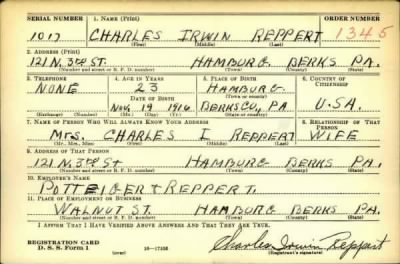 SERIAL NUMBER 1. NAME (Print) ORDER NUMBER
1017 CHARLES IRWIN REPPERT 1345
(First) (Middle) (Last)
2. ADDRESS (Print)
121 N. 3RD ST HAMBURG BERKS PA.
(Number and street or R. F. D. number) (Town) (County) (State)
3. TELEPHONE 4. AGE IN YEARS 5. PLACE OF BIRTH 6. COUNTRY OF CITIZENSHIP
NONE 23 HAMBURG
DATE OF BIRTH
NOV. 19 1916 BERKS CO., PA U.S.A.
(Exchange) (Number) (Mo.) (Day) (Yr.) (State or country)
7. NAME OF PERSON WHO WILL ALWAYS KNOW YOUR ADDRESS 8. RELATIONSHIP OF THAT PERSON
MRS. CHARLES I REPPERT WIFE
(Mr., Mrs., Miss) (First) (Middle) (Last)
9. ADDRESS OF THAT PERSON
121 N. 3RD ST HAMBURG BERKS PA.
(Number and street or R. F. D. number) (Town) (County) (State)
10. EMPLOYER'S NAME
POTTEIGER & REPPERT.
11. PLACE OF EMPLOYMENT OR BUSINESS
WALNUT ST. HAMBURG BERKS PA.
(Number and street or R. F. D. number) (Town) (County) (State)
I AFFIRM THAT I HAVE VERIFIED ABOVE ANSWERS AND THAT THEY ARE TRUE.
REGISTRATION CARD
D. S. S. Form 1 (over) Charles Irwin Reppert
(Registrant's signature)